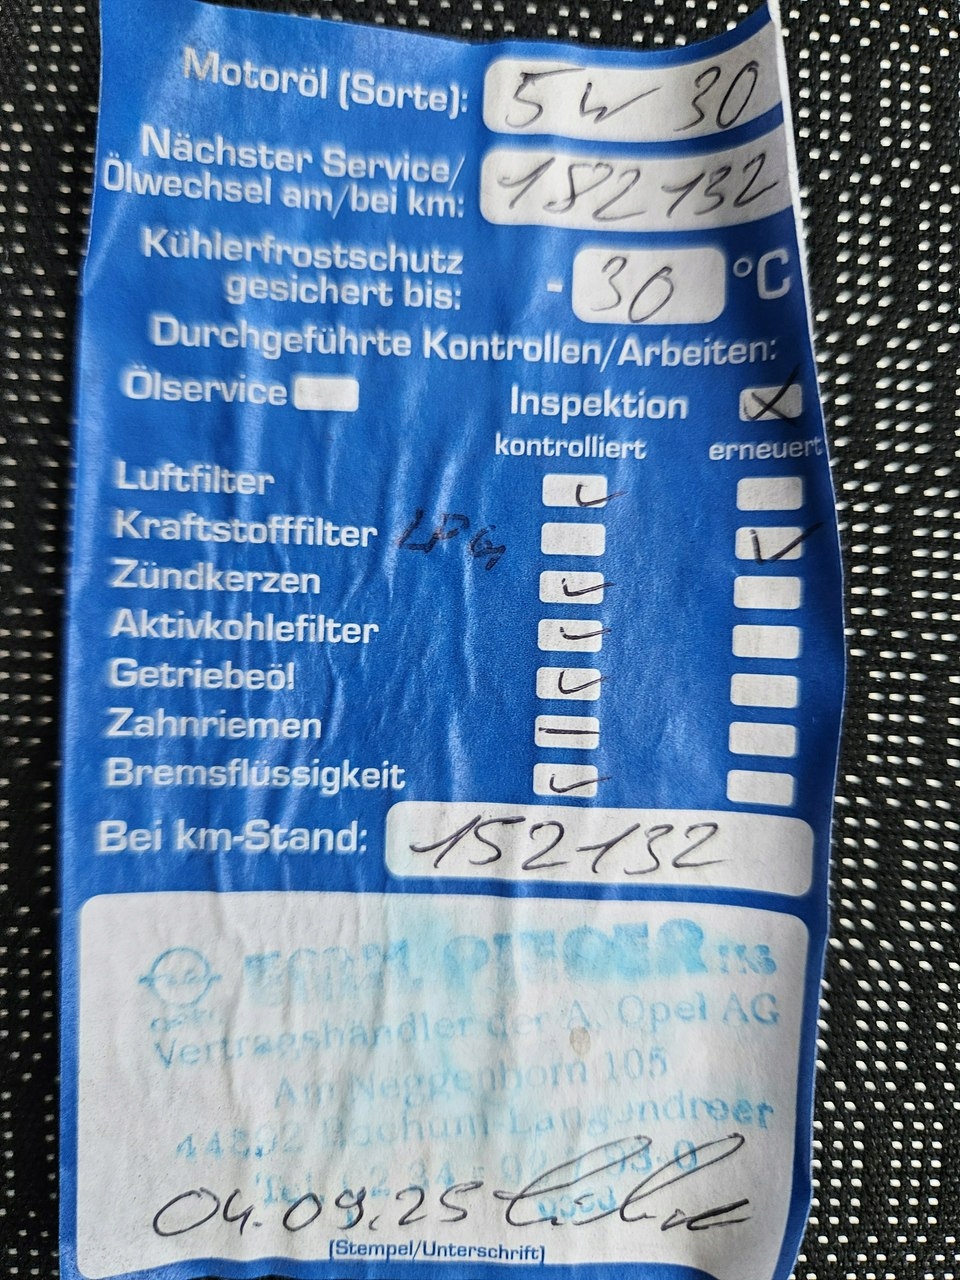 Motoröl (Sorte): 5W30
Nächster Service/
Ölwechsel am/bei km: 182132
Kühlerfrostschutz
gesichert bis: -30 °C
Durchgeführte Kontrollen/Arbeiten:
Ölservice Inspektion X
kontrolliert erneuert
Luftfilter ✓
Kraftstofffilter LPG ✓
Zündkerzen ✓
Aktivkohlefilter ✓
Getriebeöl ✓
Zahnriemen —
Bremsflüssigkeit ✓
Bei km-Stand: 152132
PIEPER
Vertragshändler der A. Opel AG
Am Neggenborn 105
44892 Bochum-Langendreer
04.09.25
(Stempel/Unterschrift)